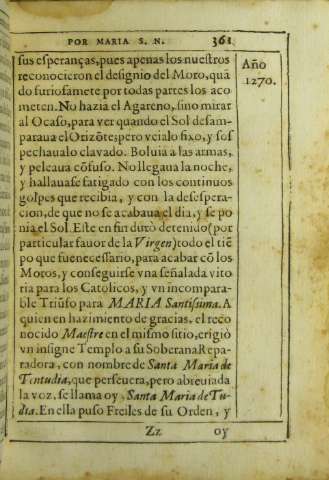 POR MARIA S. N. 361
Año
1270.
sus esperanças, pues apenas los nuestros
reconocieron el designio del Moro, quã
do furiosamẽte por todas partes los aco
meten. No hazia el Agareno, sino mirar
al Ocaso, para ver quando el Sol desam-
paraua el Orizõte; pero veialo fixo, y sos
pechaualo clavado. Boluia a las armas,
y peleaua cõfuso. No llegaua la noche,
y hallauase fatigado con los continuos
golpes que recibia, y con la desespera-
cion, de que no se acabaua el dia, y se po
nia el Sol. Este en fin durò detenido (por
particular fauor de la Virgen) todo el tiẽ
po que fue necessario, para acabar cõ los
Moros, y conseguirse vna señalada vito
ria para los Catolicos, y vn incompara-
ble Triũfo para MARIA Santissima. A
quien en hazimiento de gracias, el reco
nocido Maestre en el mismo sitio, erigiò
vn insigne Templo a su Soberana Repa-
radora, con nombre de Santa Maria de
Tentudia, que perseuera, pero abreuiada
la voz, se llama oy, Santa Maria de Tu-
dia. En ella puso Freiles de su Orden, y
Zz oy